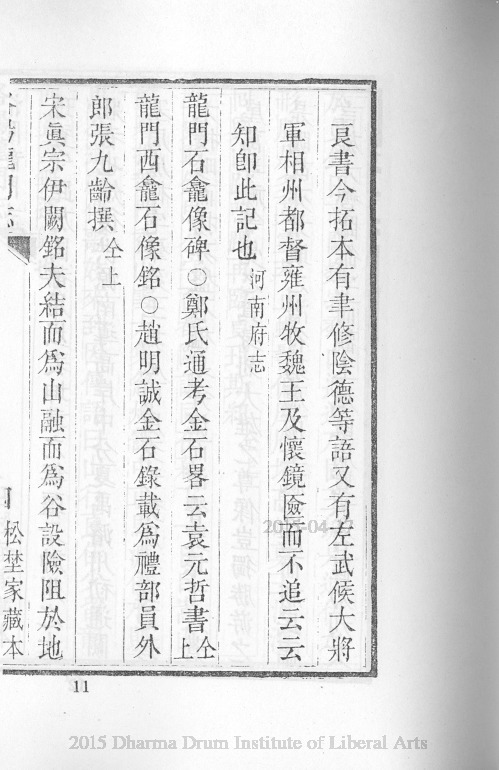 良書今拓本有聿修陰德等語又有左武候大將
軍相州都督雍州牧魏王及懷鏡險而不追云云
知卽此記也 河南府志
龍門石龕像碑○鄭氏通考金石畧云袁元哲書 仝上
龍門西龕石像銘○趙明誠金石錄載爲禮部員外
郎張九齡撰 仝上
宋眞宗伊闕銘夫結而爲山融而爲谷設險阻於地
龍門志
松埜家藏本
11
2015-04-17
2015 Dharma Drum Institute of Liberal Arts